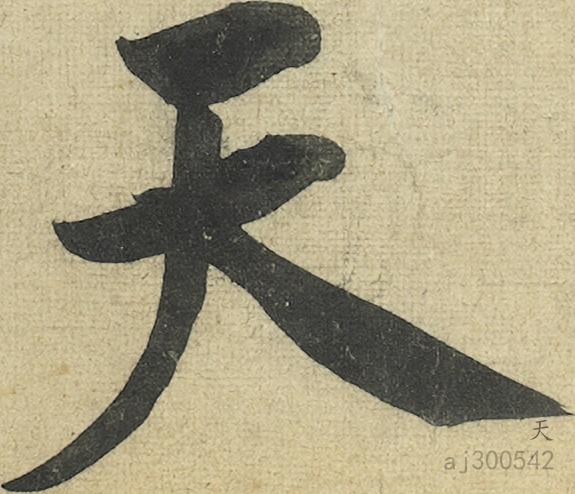 天
天
aj300542